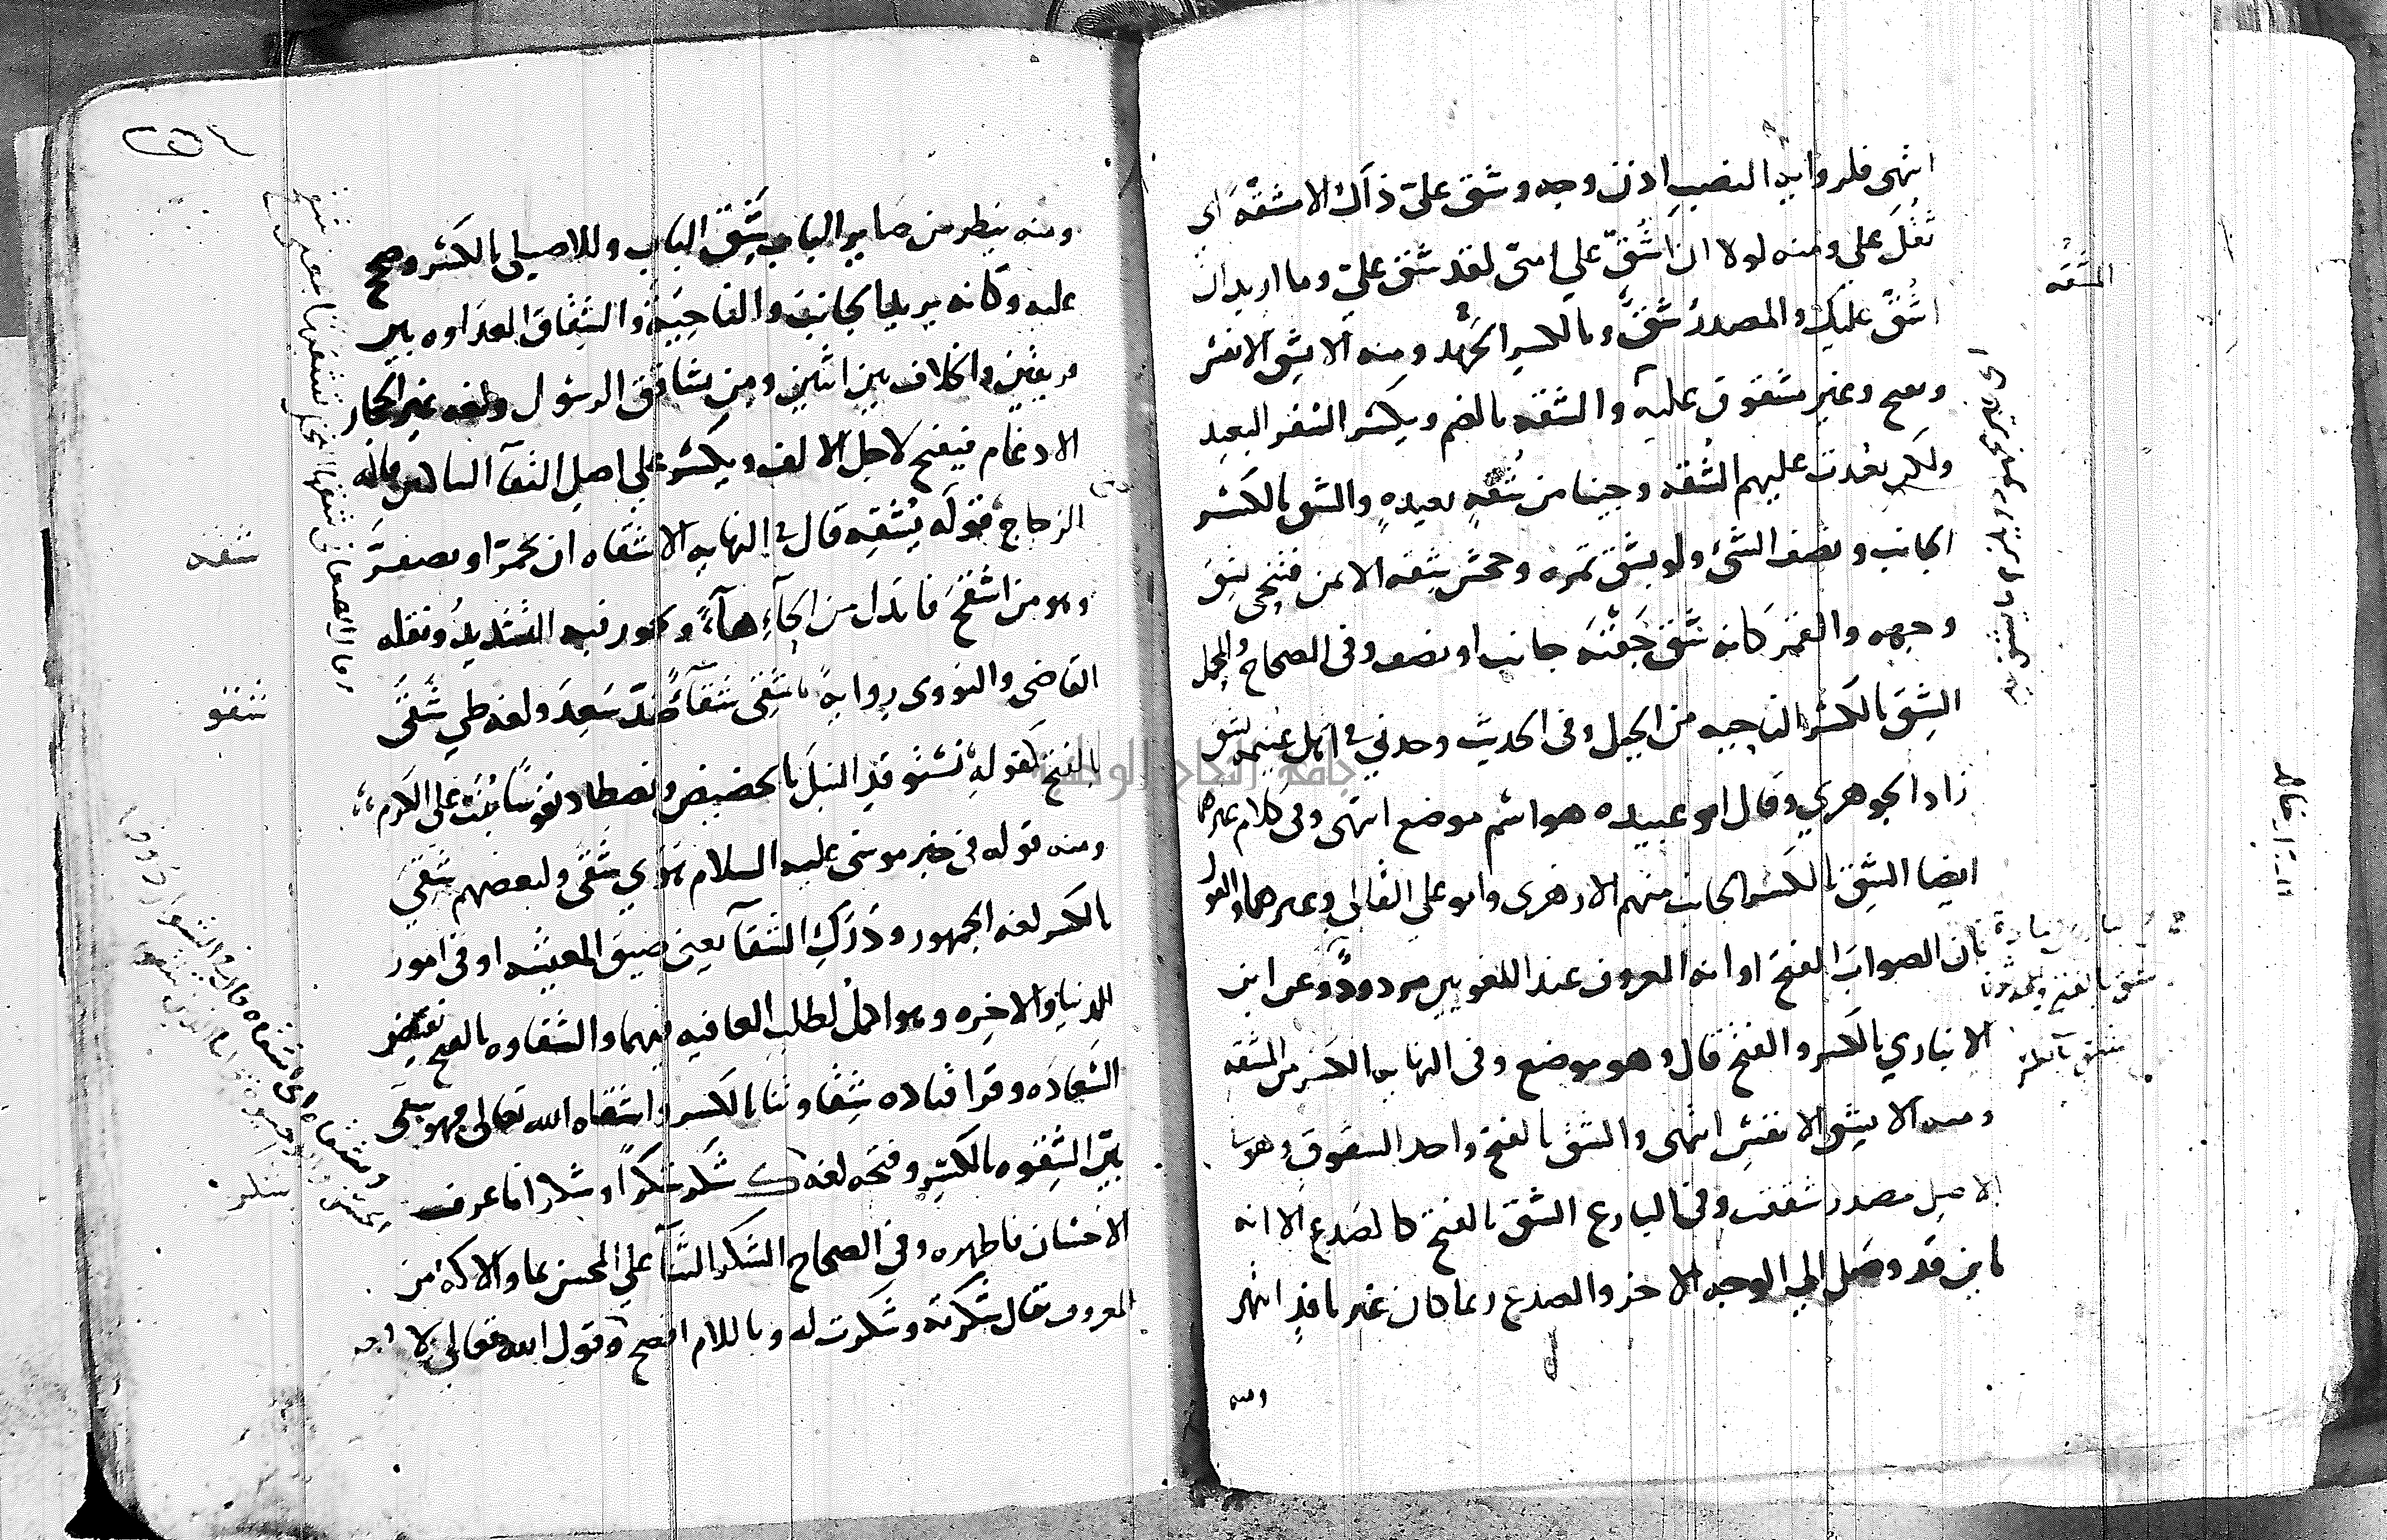 انتهى فلرواية النصب اذن وجه وشق علي ذلك الامر مشقة اي
ثقل علي ومنه لولا ان اشق علي امتي لقد شق علي وما اريد ان
اشق عليك والمصدر شق وبالكسر الجهد ومنه الا بشق الانفس
وبفتح وغير مشقوق عليه والشقة بالضم ويكسر السفر البعيد
ولكن بعدت عليهم الشقة وجينا من شقة بعيدة والشق بالكسر
الجانب ونصف الشئ ولو بشق تمرة وجحش شقه الايمن فتنحى لشق
وجهه والقمر كانه شق جفنة جانب او نصف وفي الصحاح والمجمل
الشق بالكسر الناحيه من الجبل وفي الحديث وجدني في اهل غنيمه بشق
زاد الجوهري وقال ابو عبيده هو اسم موضع انتهى وفي كلام غيرهما
ايضا الشق بالكسر الجانب منهم الازهري وابو علي القالي وغيرهما والقول
بان الصواب الفتح او انه المعروف عند اللغويين مردود وعن ابن
الانباري بالكسر والفتح قال وهو موضع وفي النهاية بالكسر من المشقه
ومنه الا بشق الانفس انتهى والشق بالفتح واحد الشقوق وهو في
الاصل مصدر شققت وفي البارع الشق بالفتح كالصدع الا انه
باين قد وصل الي الوجه الاخر والصدع ربما كان غير نافذ انتهى
ومنه
المشقه
شق بالفتح والمحدثون
٢٥٤
ومنه ينظر من صاير الباب شق الباب وللاصيلي بالكسر وصحح
عليه وكانه يريد الجانب والناحية والشقاق العداوه بين
فريقين والخلاف بين اثنين ومن يشاقق الرسول ولغه غير الحجاز
الادغام فيفتح لاجل الالف ويكسر علي اصل التقآ الساكنين قاله
الزجاج قوله يشقه قال في النهايه الاشقاه ان يحمر او يصفر
وهو من اشقح فابدل من الحآء هآء ويجوز فيه التشديد ونقله
القاضي والنووي رواية شقي شقآ ضد سعد ولغه طي شقى
بالفتح كقوله نستوقد النبل بالحضيض ونصطاد نفوسا بنت على الكرم
ومنه قوله في خبر موسى عليه السلام هوي شقى ولبعضهم شقي
بالكسر لغه الجمهور ودرك الشقآ يعني ضيق المعيشه او في امور
الدنيا والاخره وهو اكمل لطلب العافيه فيهما والشقاوه بالفتح نقيض
السعاده وقرا قتاده شقاوتنا بالكسر واشقاه الله تعالى فهو شقي
بين الشقوه بالكسر وفتحه لغه شكر شكرا وشكرانا عرف
الاحسان فاظهره وفي الصحاح الشكر الثنآ علي المحسن بما اولاكه من
المعروف يقال شكرته وشكرت له وباللام افصح وقول الله تعالى لا
شقه
شقو
شكر